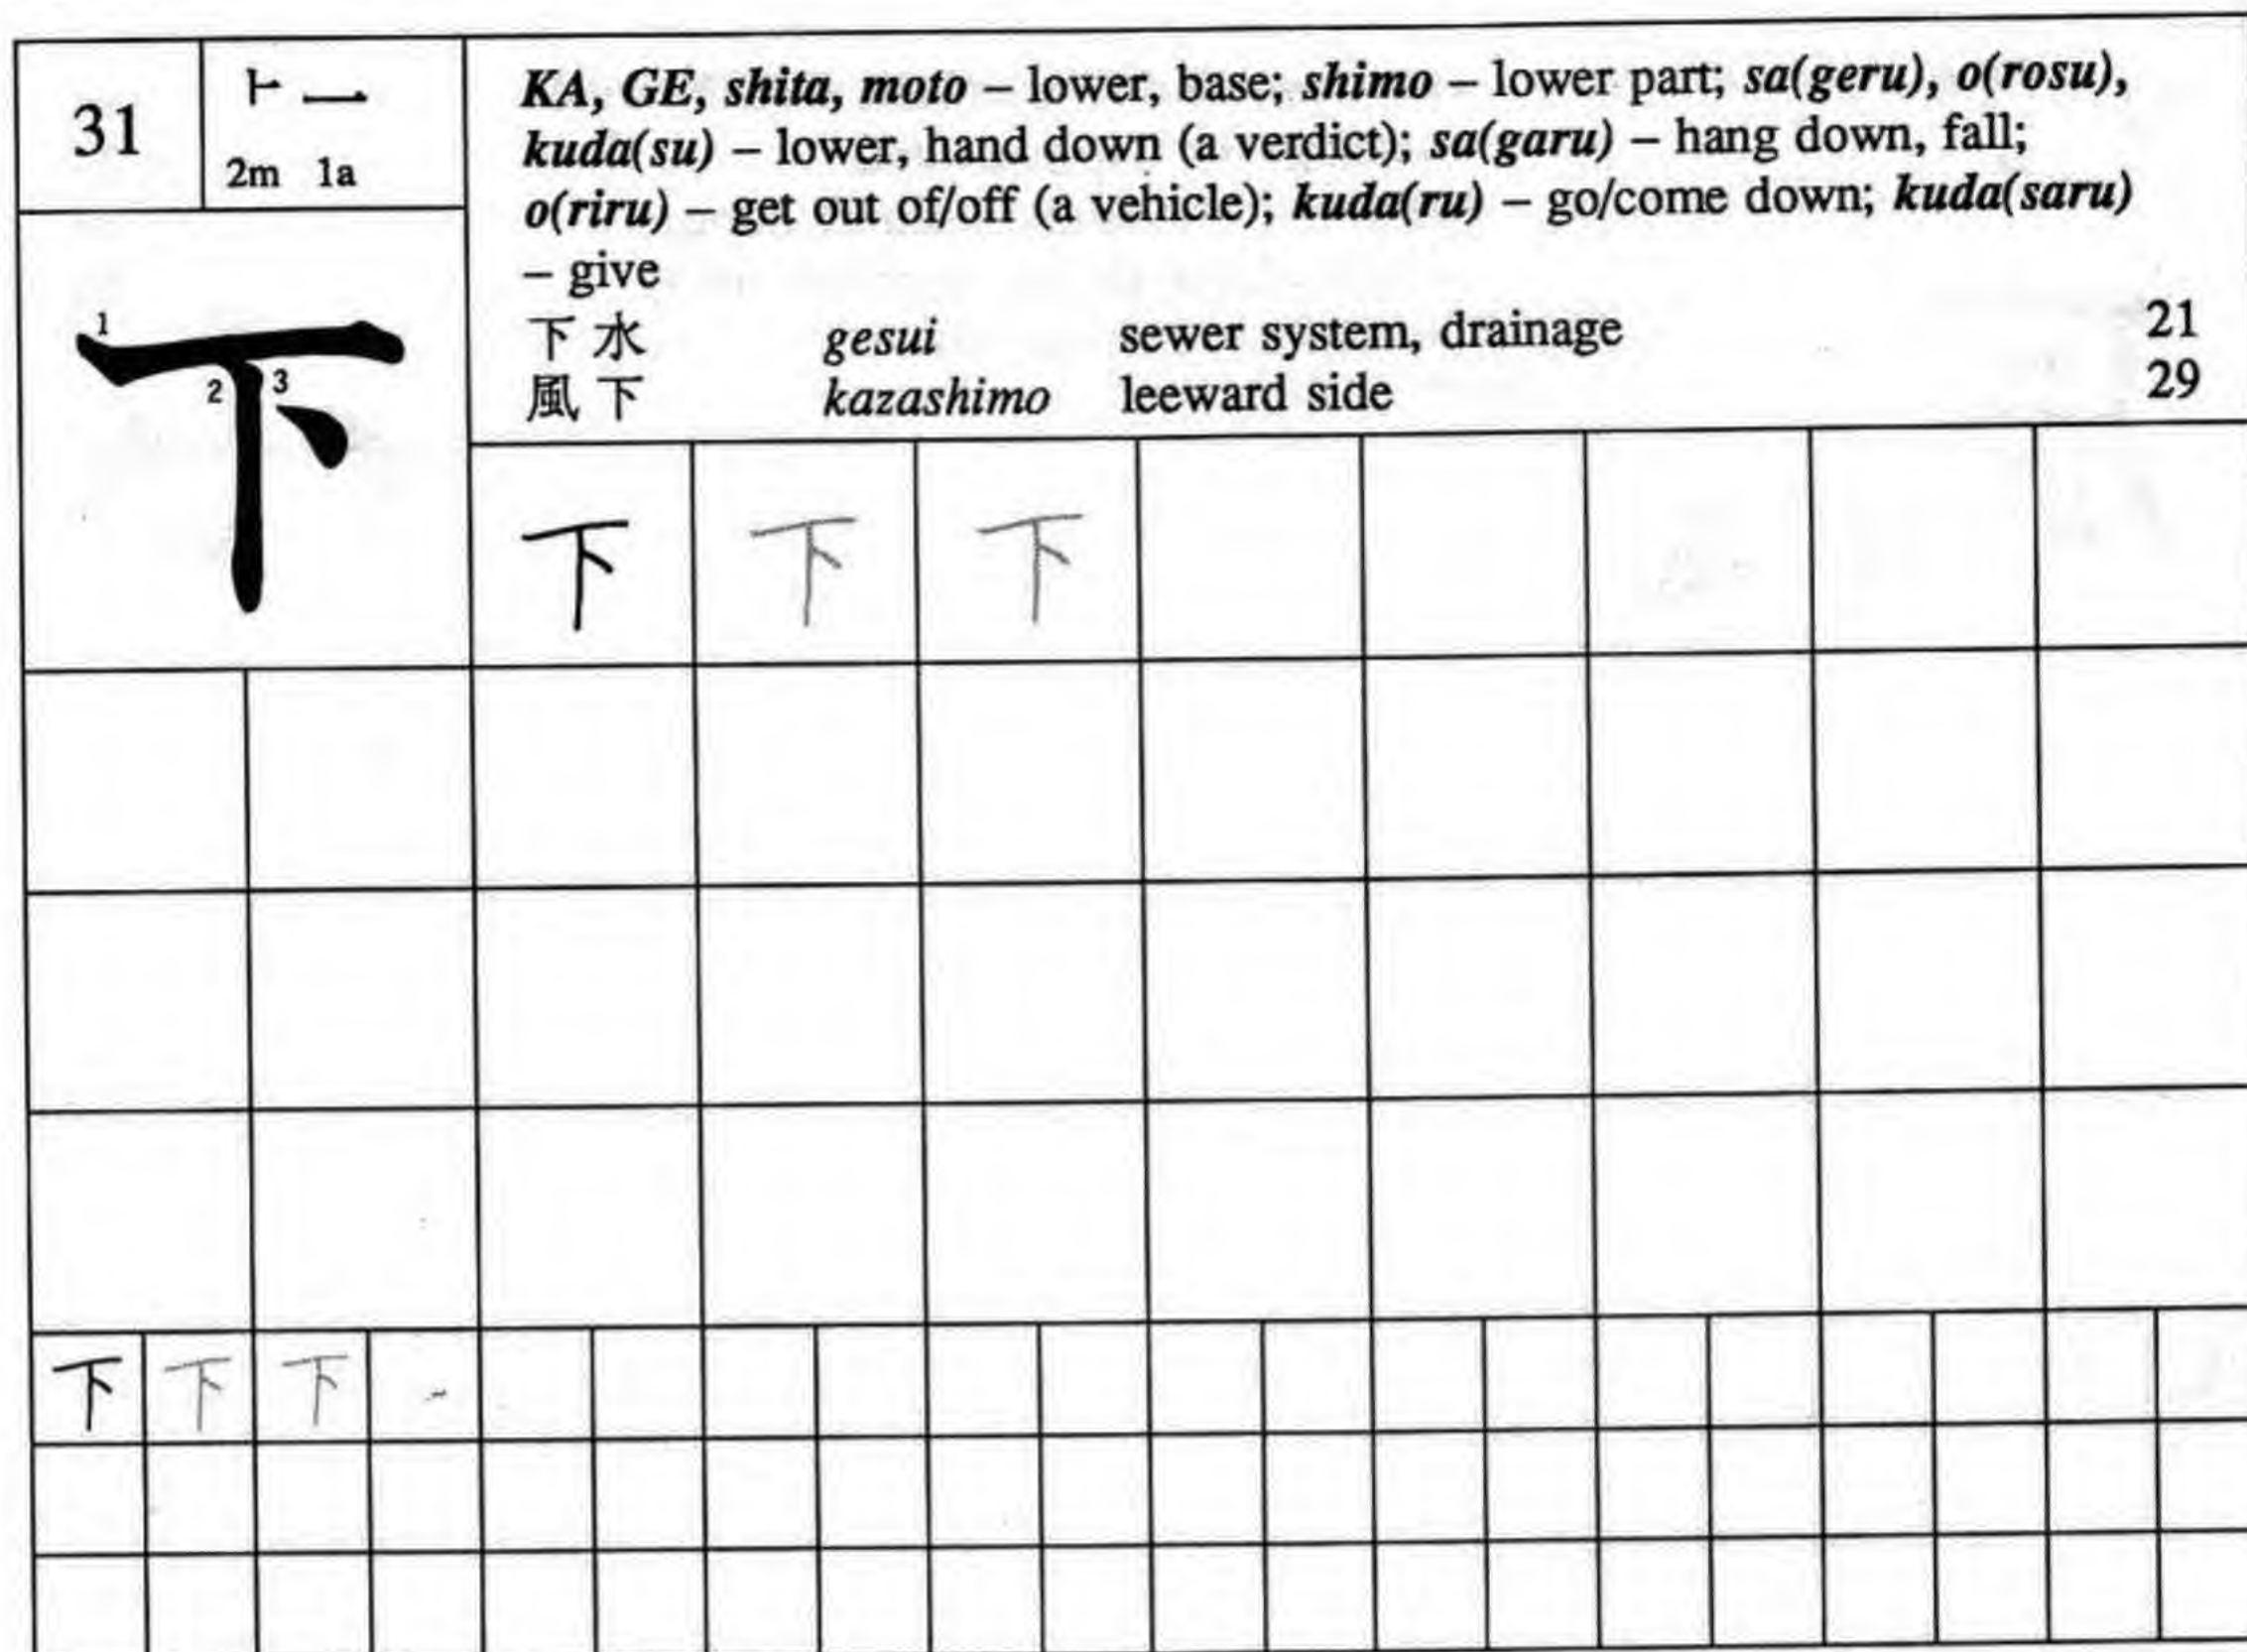 31
⺊ 一
2m 1a
KA, GE, shita, moto – lower, base; shimo – lower part; sa(geru), o(rosu),
kuda(su) – lower, hand down (a verdict); sa(garu) – hang down, fall;
o(riru) – get out of/off (a vehicle); kuda(ru) – go/come down; kuda(saru)
– give
下水 gesui sewer system, drainage 21
風下 kazashimo leeward side 29
1 2 3
下
下 下 下
下 下 下